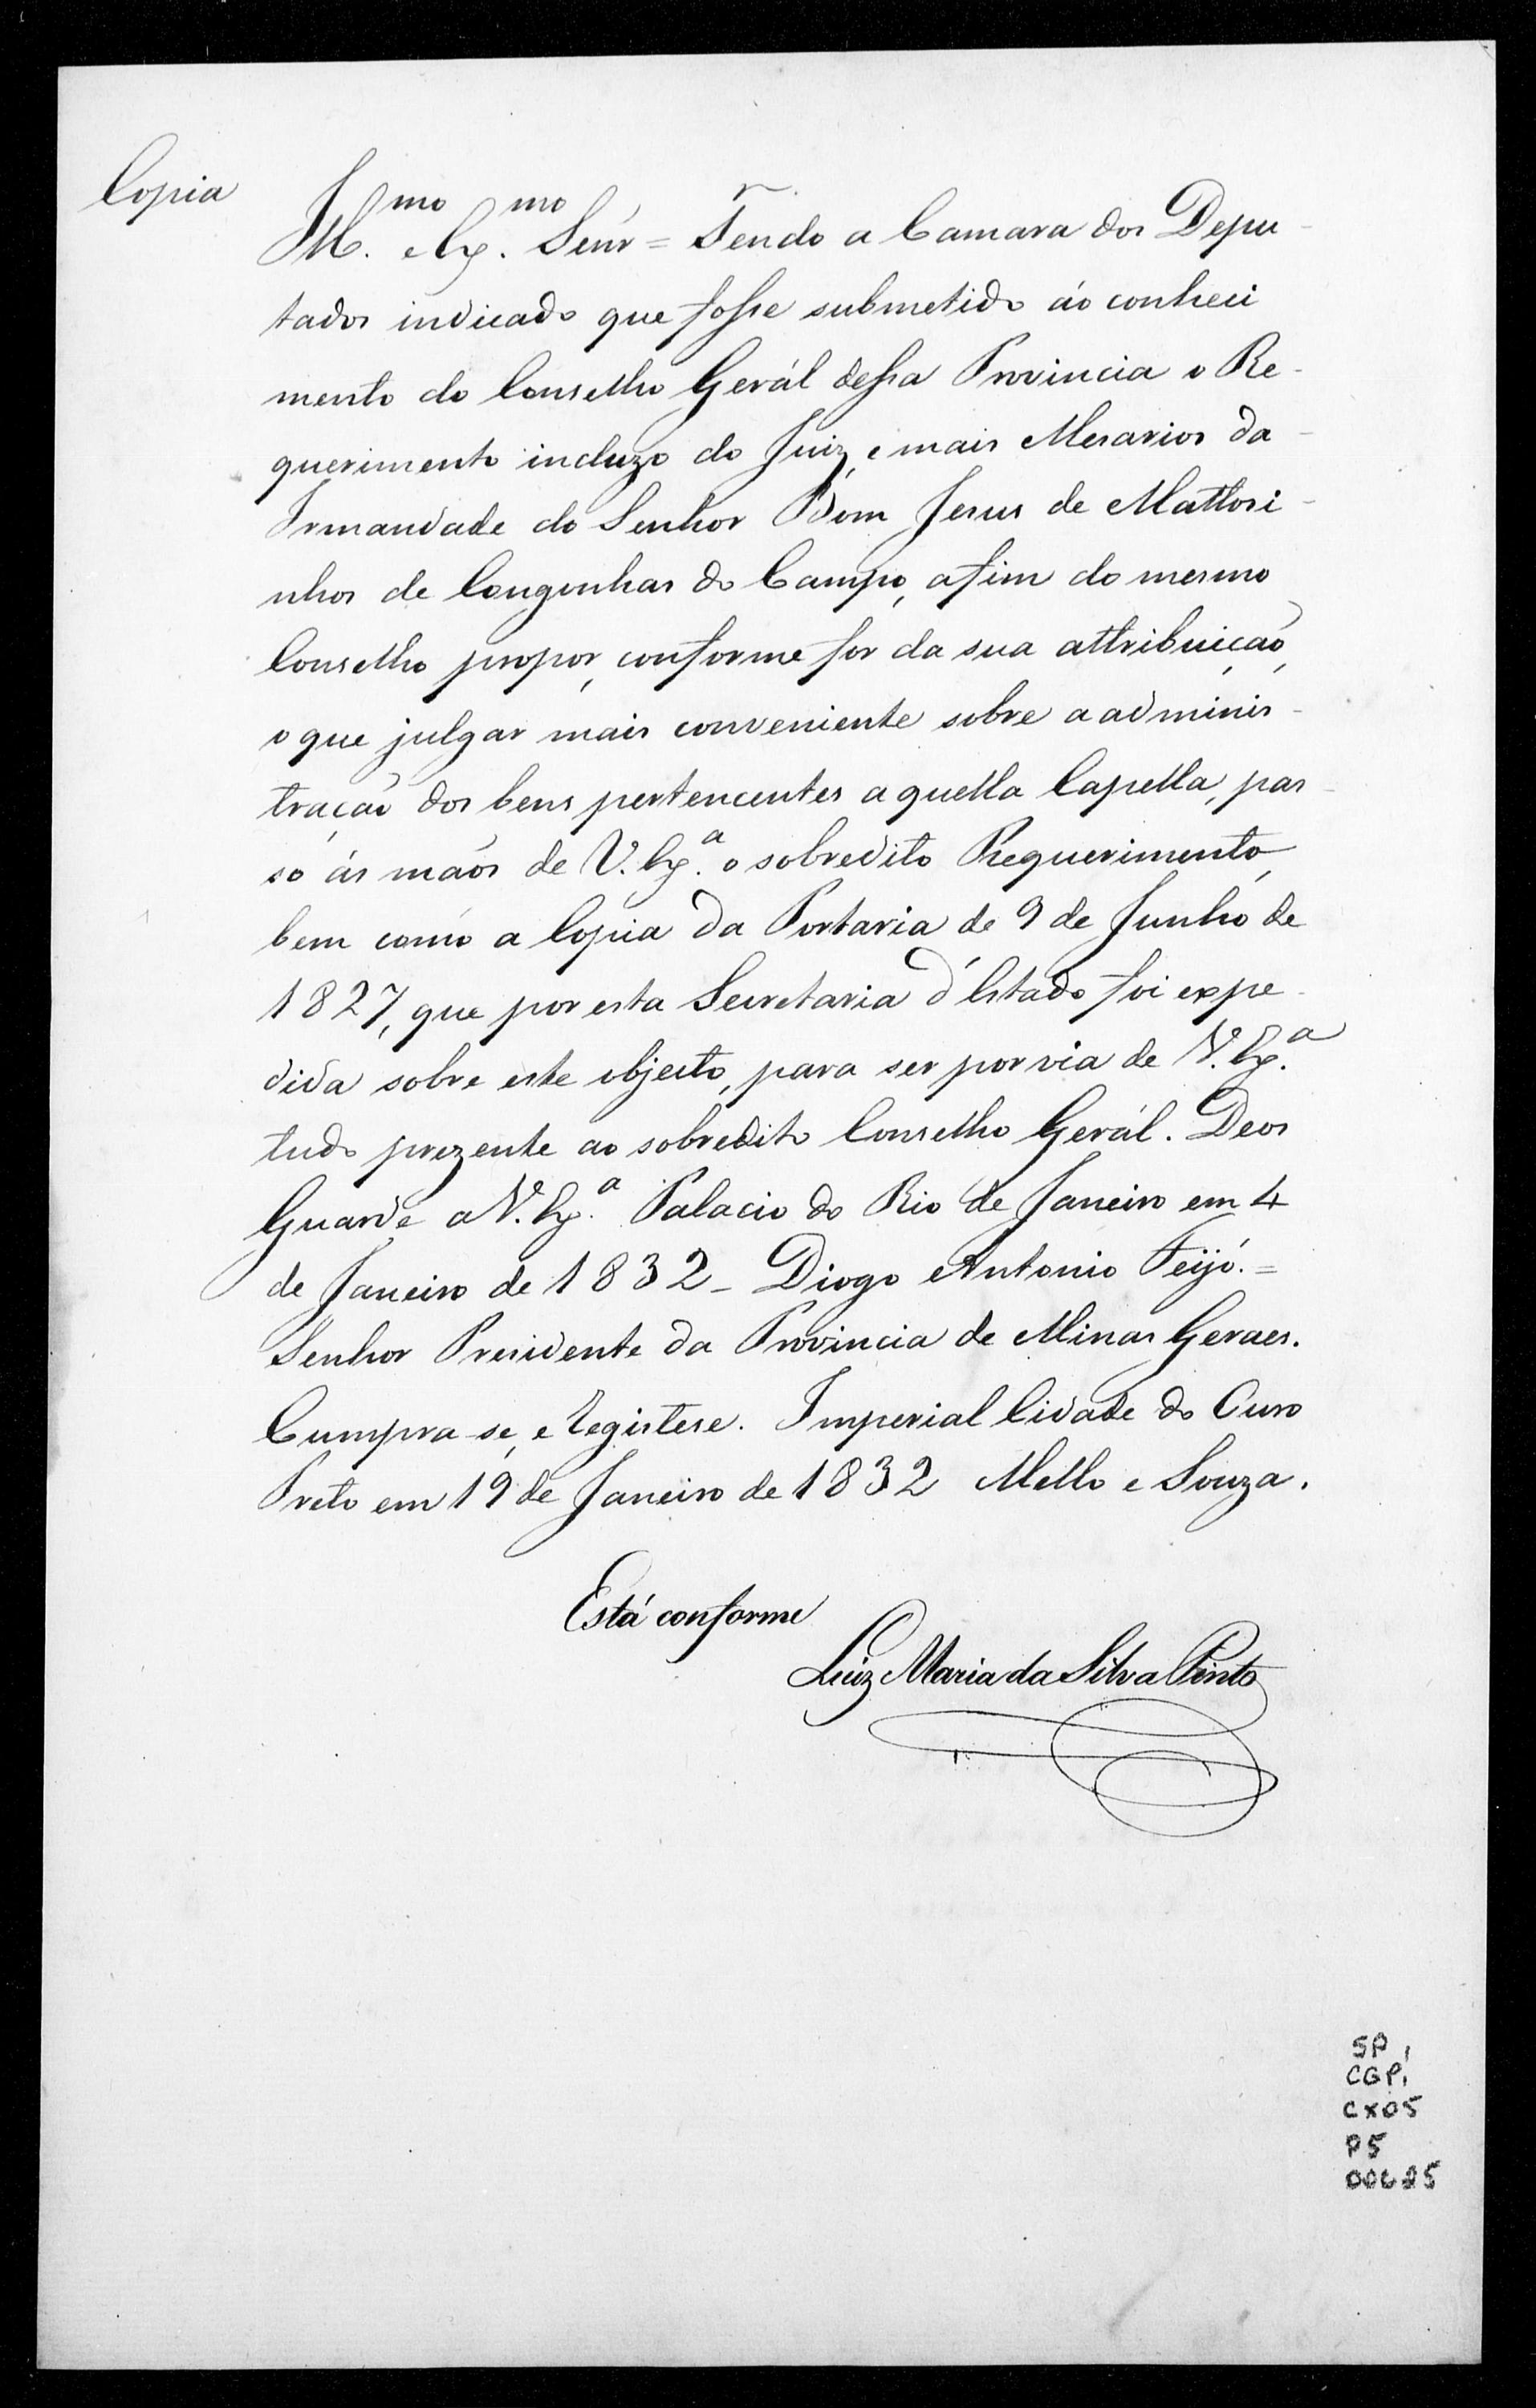 Copia
Ill.mo e Ex.mo Senr = Tendo a Camara dos Depu-
tados indicado que fosse submetido áo conheci
mento do Conselho Gerál dessa Provincia o Re-
querimento incluzo do Juiz, e mais Mesarios da
Irmandade do Senhor Bom Jesus de Mattosi-
nhos de Congonhas do Campo, afim do mesmo
Conselho propôr, conforme for da sua attribuição,
o que julgar mais conveniente sobre a adminis-
tração dos bens pertencentes a quella Capella, pas-
so ás mãos de V. Ex.a o sobredito Requerimento,
bem como a Copia da Portaria de 9 de Junho de
1827, que por esta Secretaria d'Estado foi expe-
dida sobre este objecto, para ser por via de V. Ex.a
tudo prezente ao sobredito Conselho Gerál. Deos
Guarde a V. Ex.a Palacio do Rio de Janeiro em 4
de Janeiro de 1832 - Diogo Antonio Feijó. =
Senhor Presidente da Provincia de Minas Geraes.
Cumpra-se, e Registese. Imperial Cidade do Ouro
Preto em 19 de Janeiro de 1832 Mello e Souza.
Está conforme
Luiz Maria da Silva Pinto
SP,
CGP1
CX05
P5